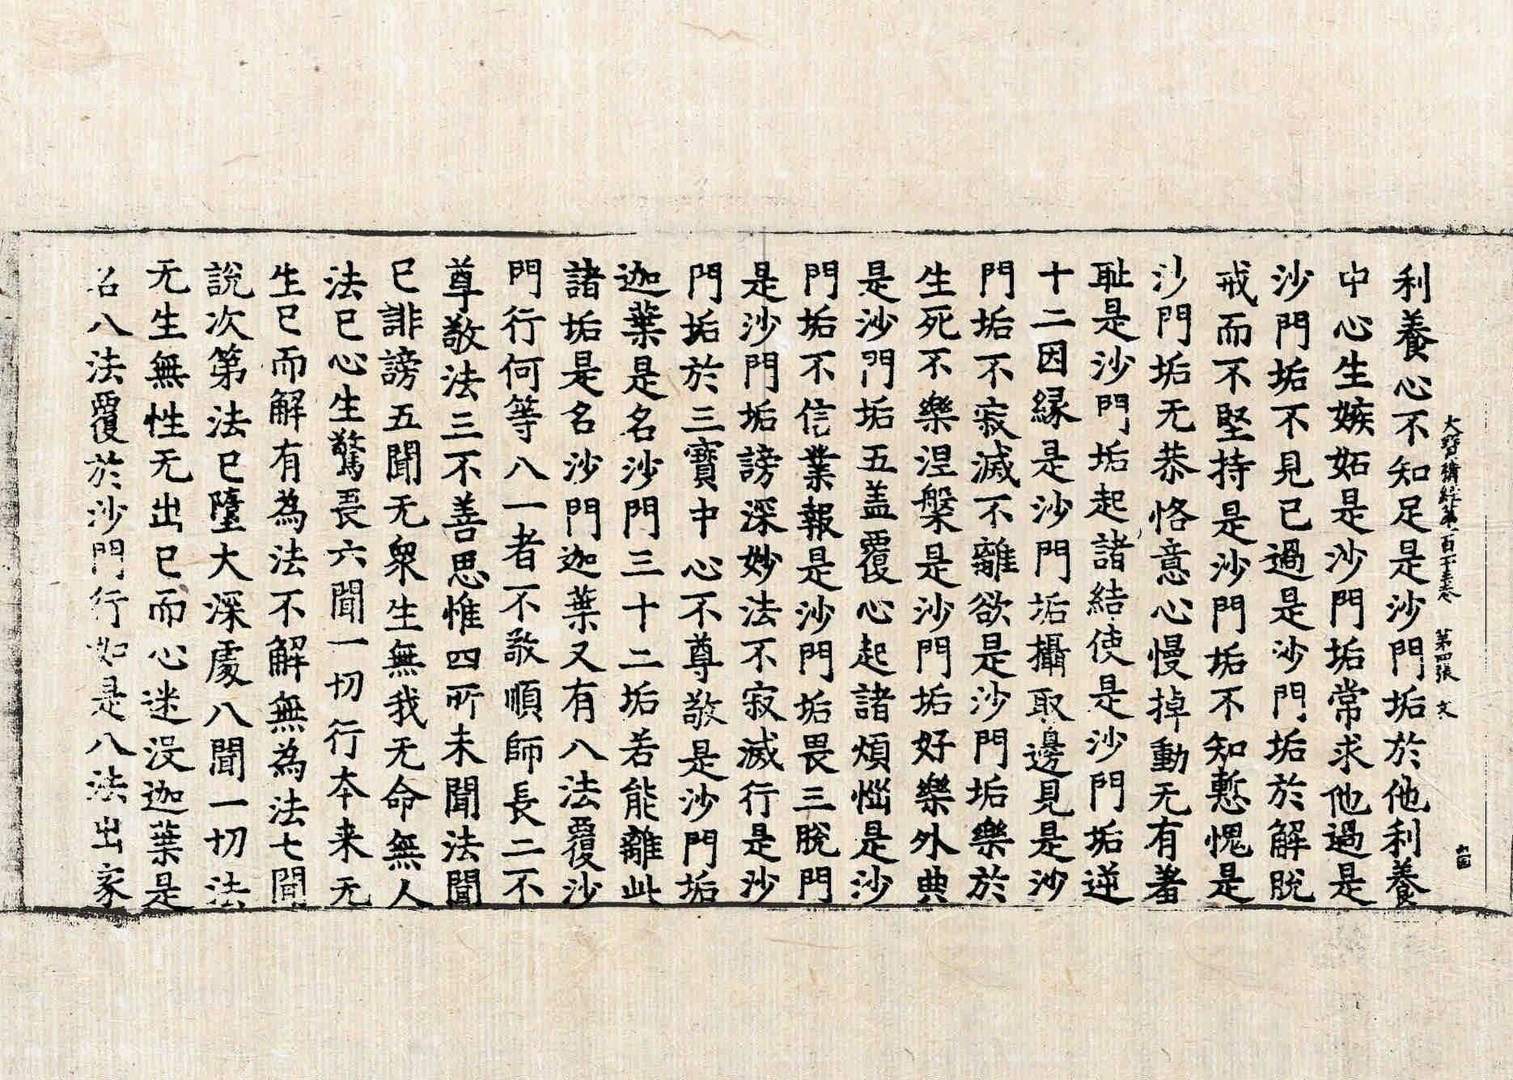 大寶積經第一百十三卷 第四張 文
利養心不知足是沙門垢於他利養
中心生嫉妬是沙門垢常求他過是
沙門垢不見已過是沙門垢於解脫
戒而不堅持是沙門垢不知慙愧是
沙門垢无恭恪意心慢掉動无有羞
耻是沙門垢起諸結使是沙門垢逆
十二因緣是沙門垢攝取邊見是沙
門垢不寂滅不離欲是沙門垢樂於
生死不樂涅槃是沙門垢好樂外典
是沙門垢五盖覆心起諸煩惱是沙
門垢不信業報是沙門垢畏三脫門
是沙門垢謗深妙法不寂滅行是沙
門垢於三寶中心不尊敬是沙門垢
迦葉是名沙門三十二垢若能離此
諸垢是名沙門迦葉又有八法覆沙
門行何等八一者不敬順師長二不
尊敬法三不善思惟四所未聞法聞
已誹謗五聞无衆生無我无命無人
法已心生驚畏六聞一切行本来无
生已而解有為法不解無為法七聞
說次第法已墮大深處八聞一切法
无生無性无出已而心迷沒迦葉是
名八法覆於沙門行如是八法出家